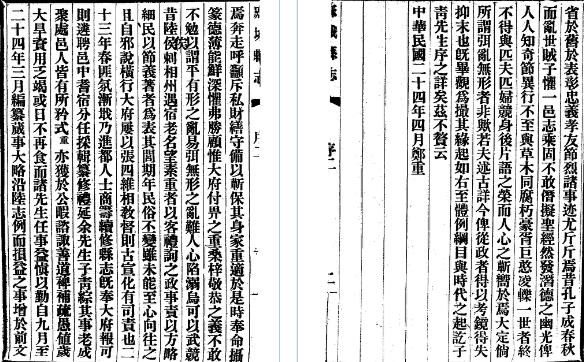 麻城縣志
序一
焉奔走呼籲斥私財繕守備以蘄保其身家重適於是時奉命攝
篆德薄能鮮深懼弗勝顧惟大府付畀之重桑梓敬恭之義不敢
不勉以謂平有形之亂易弭無形之亂難人心陷溺烏可以武競
昔陸俟刺相州遇宿老名望素重者以客禮詢之政事責以方略
細民以節義著者為表其閭期年民俗丕變雖未能至心向往之
且自邪說橫行大府屢以張四維相教督則古宣化有司責也二
十三年春匪氛漸戢乃進都人士商籌續修縣志旣奉大府報可
則遴聘邑中耆宿分任採輯纂修禮延余先生子青綜其事老成
聚處邑人皆有所矜式重亦獲於公暇諮諏善道裨補疏愚値歲
大旱資用乏竭或日不再食而諸先生任事益愼以勤自九月至
二十四年三月編纂蕆事大略沿陸志例而損益之事增於前文
省於舊於表彰忠義孝友節烈諸事迹尤斤斤焉昔孔子成春秋
而亂世賊子懼一邑志乘固不敢僭擬聖經然發濳德之幽光俾
人人知奇節異行不至與草木同腐朽豪胥巨憝凌轢一世者終
不得與匹夫匹婦競身後片語之榮而人心之蘄嚮於焉大定倘
所謂弭亂無形者非歟若夫述古詳今俾從政者得以考鏡得失
抑末也旣畢觀爲撮其緣起如右至體例綱目與時代之起訖子
青先生序之詳矣茲不贅云
中華民國二十四年四月鄭重
麻城縣志
序二
二